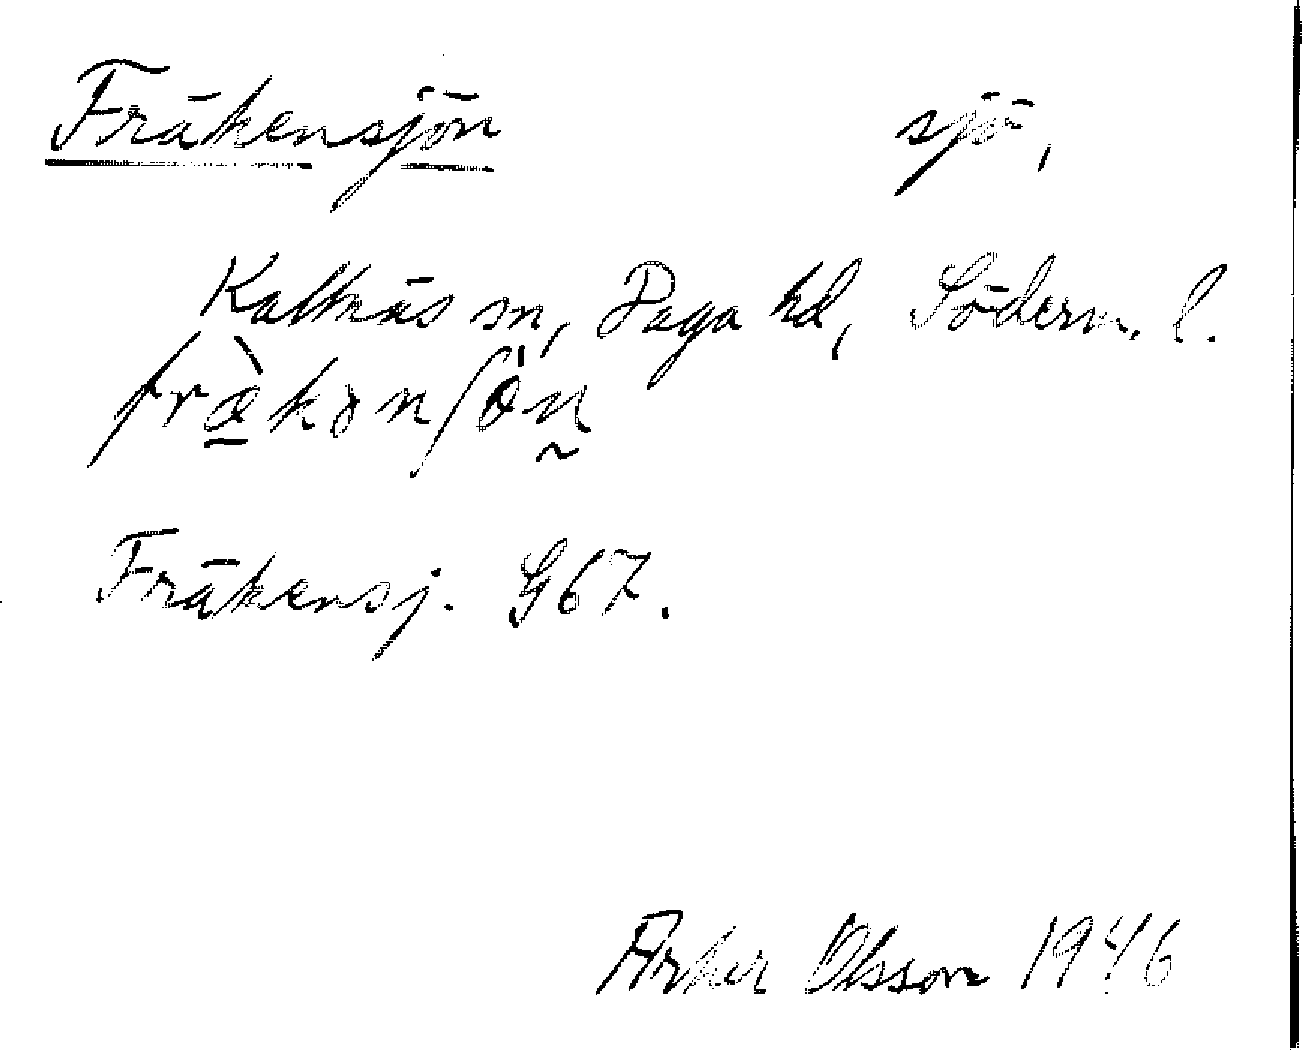 Fräkensjön sjö,
Kattnäs sn, Daga hd, Söderm. l.
fræ̀kənʃön
Fräkensj. G67.
Olsson 1946